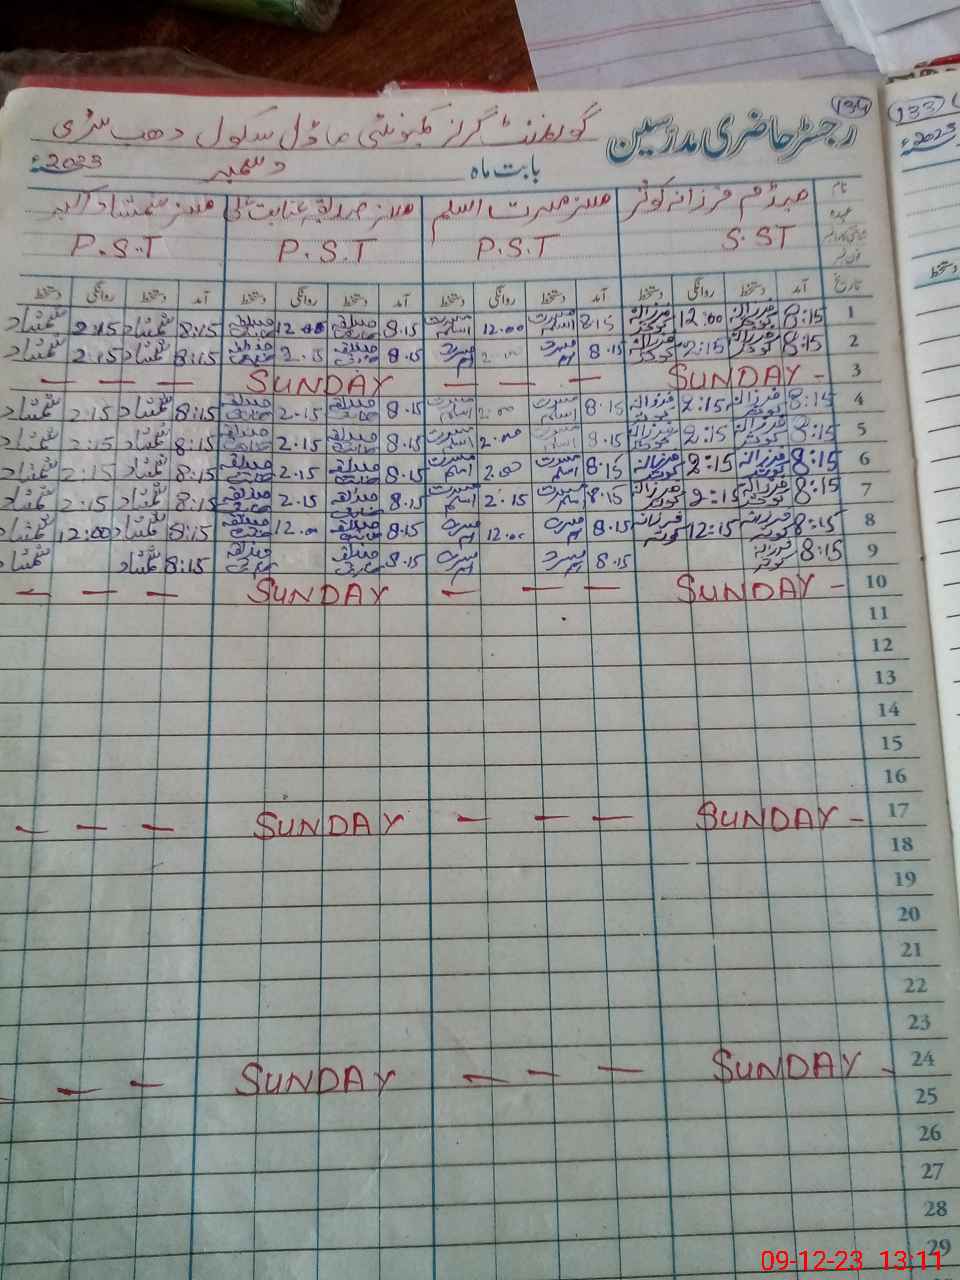 134
133
رجسٹر حاضری مدرسین
گورنمنٹ گرلز کمیونٹی ماڈل سکول دھب سڑی
بابت ماہ دسمبر 2023ء
2023
نام ہیڈ مسٹریس فرزانہ کوثر مسز مسرت اسلم مسز صداقیہ عنایت علی مسز شمشاد اکبر
عہدہ S.ST P.S.T P.S.T P.S.T
تاریخ آمد دستخط روانگی دستخط آمد دستخط روانگی دستخط آمد دستخط روانگی دستخط آمد دستخط روانگی دستخط
1 8:15 فرزانہ کوثر 12:00 فرزانہ کوثر 8.15 مسرت اسلم 12.00 مسرت اسلم 8.15 12.00 8:15 شمشاد 2:15 شمشاد
2 8:15 فرزانہ کوثر 2:15 فرزانہ کوثر 8.15 مسرت 2.00 مسرت 8.15 2.15 8:15 شمشاد 2:15 شمشاد
3 SUNDAY - — — — SUNDAY — — —
4 8:15 فرزانہ کوثر 2:15 فرزانہ کوثر 8:15 مسرت اسلم 2:00 مسرت اسلم 8.15 2.15 8:15 شمشاد 2:15 شمشاد
5 8:15 فرزانہ کوثر 2:15 فرزانہ کوثر 8.15 مسرت اسلم 2.00 مسرت اسلم 8.15 2.15 8:15 شمشاد 2:15 شمشاد
6 8:15 فرزانہ کوثر 2:15 فرزانہ کوثر 8:15 مسرت اسلم 2.00 مسرت اسلم 8.15 2.15 8:15 شمشاد 2:15 شمشاد
7 8:15 فرزانہ کوثر 2:15 فرزانہ کوثر 8.15 مسرت اسلم 2.15 مسرت اسلم 8.15 2.15 8:15 شمشاد 2:15 شمشاد
8 8:15 فرزانہ کوثر 12:15 فرزانہ کوثر 8.15 مسرت 12.00 مسرت 8.15 12.00 8:15 شمشاد 12:00 شمشاد
9 8:15 فرزانہ کوثر 8.15 مسرت مسرت 8.15 8:15 شمشاد شمشاد
10 SUNDAY - — — — SUNDAY — — —
11
12
13
14
15
16
17 SUNDAY - — — — SUNDAY — — —
18
19
20
21
22
23
24 SUNDAY - — — — SUNDAY — — —
25
26
27
28
29
09-12-23 13:11